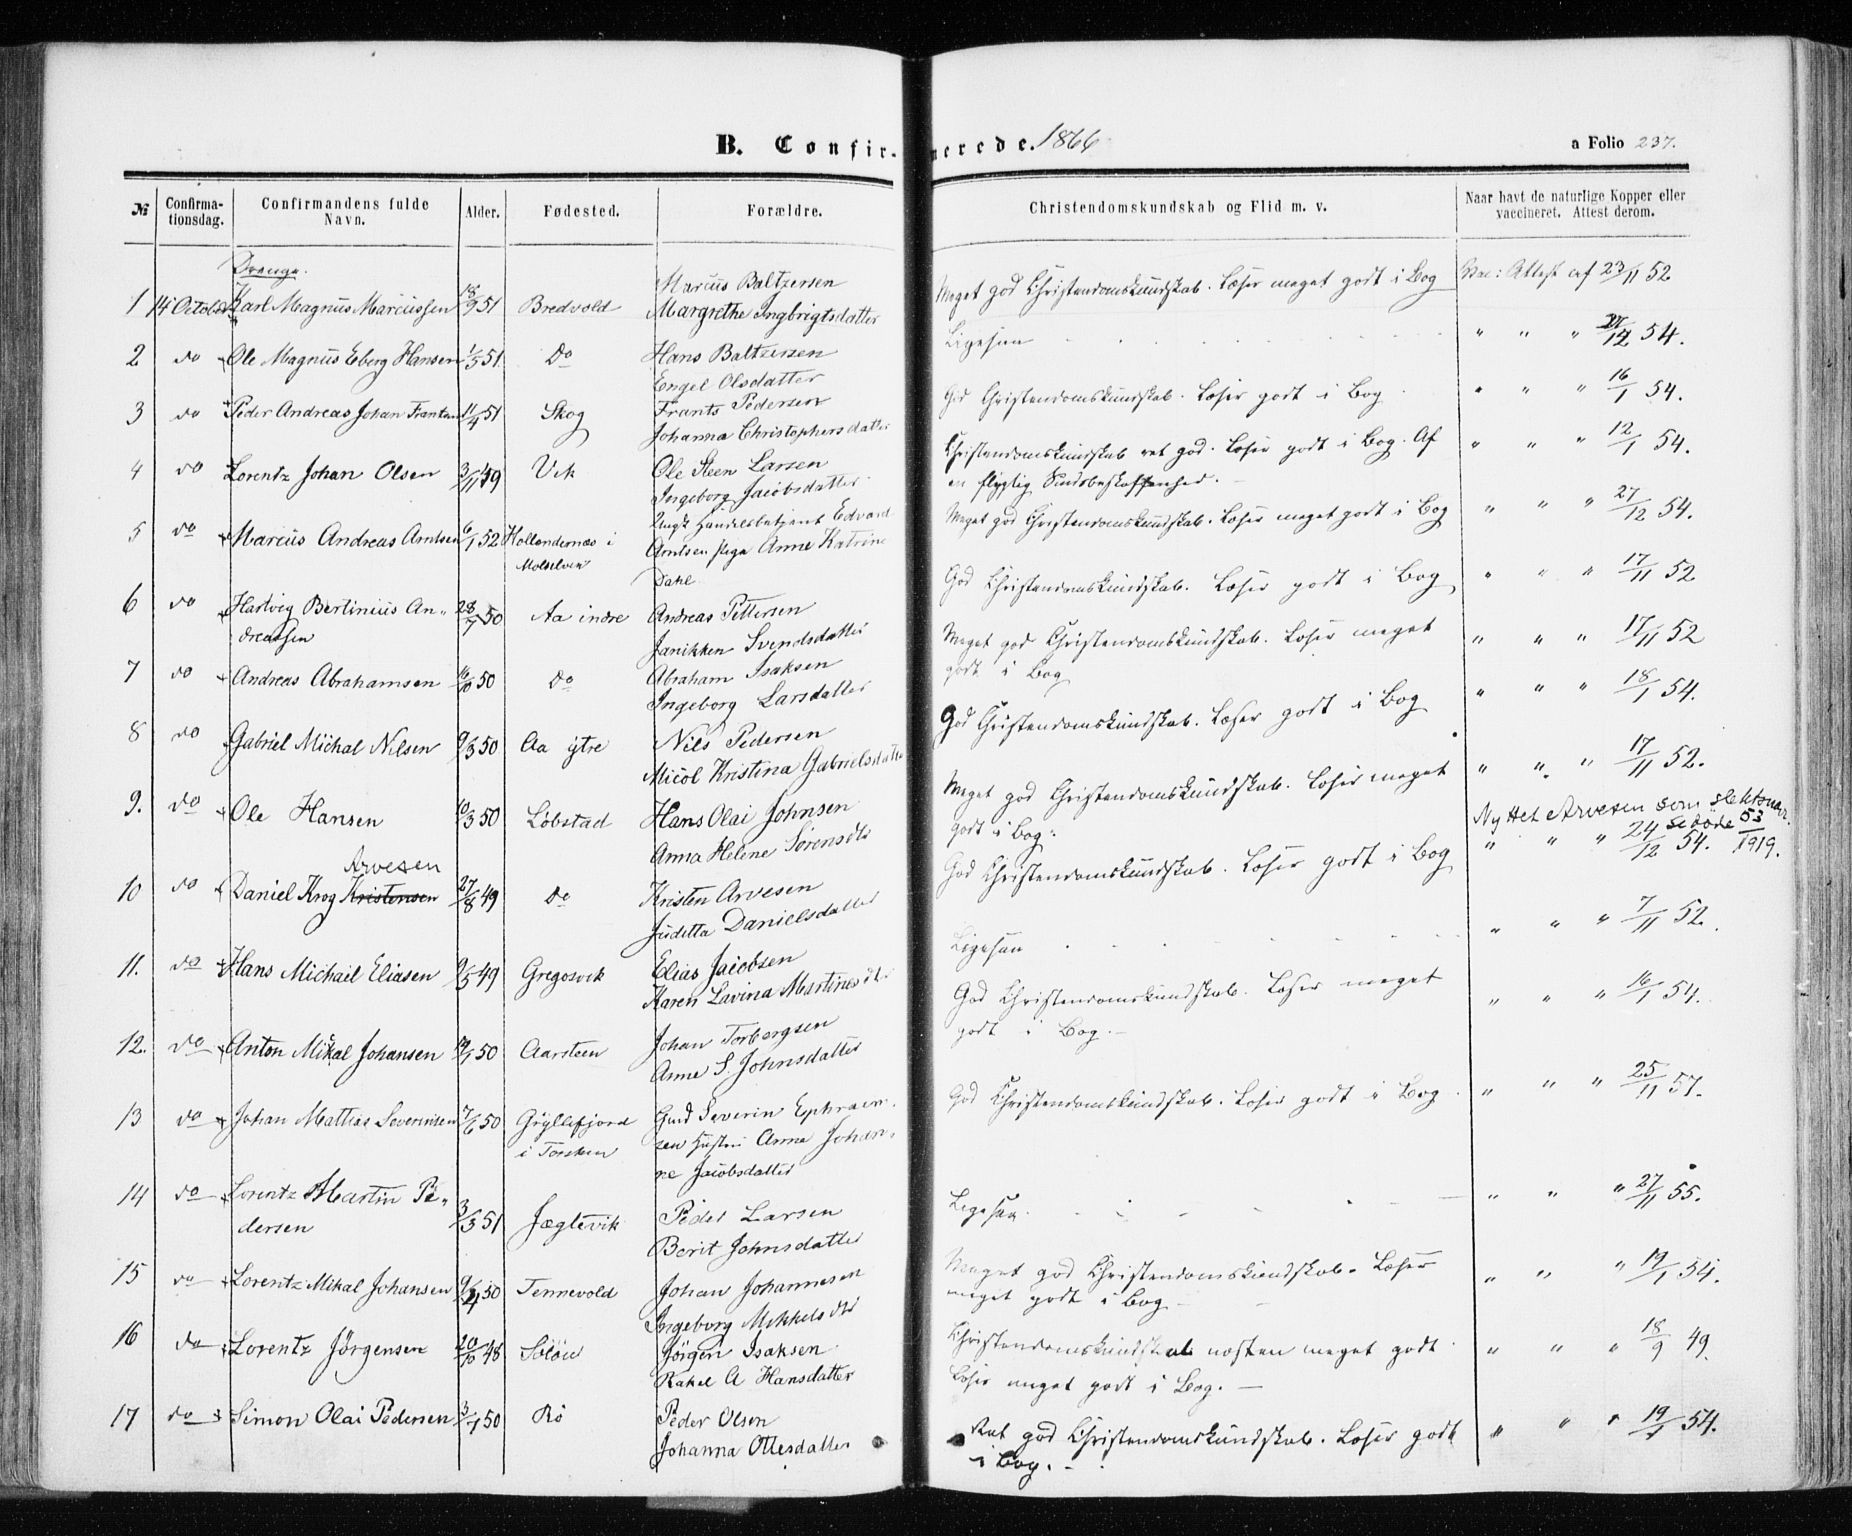 B. Confirmerede. 1866
a Folio 237.
№ Confirmationsdag. Confirmandens fulde Navn. Alder. Fødested. Forældre. Christendomskundskab og Flid m. v. Naar havt de naturlige Kopper eller vaccineret. Attest derom.
Drenge.
1 14 October Karl Magnus Marcussen 18/9 51 Bredvold Marcus Baltzersen Meget god Christendomskundskab. Læser meget godt i Bog Vac: Attest af 23/11 52
Margrethe Ingbrigtsdatter
2 do Ole Magnus Eberg Hansen 1/5 51 Do Hans Baltzersen Ligesaa " " " 12 54.
Engel Olsdatter
3 do Peder Andreas Johan Frantsen 11/4 51 Skog Frants Pedersen God Christendomskundskab. Læser godt i Bog " " " 16/1 54.
Johanna Christophersdatter
4 do Lorentz Johan Olsen 3/11 49 Vik Ole Steen Larsen Christendomskundskab ret god. Læser godt i Bog. Af " " " 12/1 54.
Ingeborg Jacobsdatter en flygtig Sindsbeskaffenhed.
5 do Marcus Andreas Arntsen 6/1 52 Hollendernæs i Ungk Handelsbetjent Edvard Meget god Christendomskundskab. Læser meget godt i Bog " " " 27/12 54.
Molselven Arntsen Pige Anne Katrine
Dahl
6 do Hartvig Bertinius An- 28/7 50 Aa indre Andreas Pettersen God Christendomskundskab. Læser godt i Bog " " " 17/11 52
dreassen Janikken Svendsdatter
7 do Andreas Abrahamsen 16/10 50 Do Abraham Isaksen Meget god Christendomskundskab. Læser meget " " " 17/11 52
Ingeborg Larsdatter godt i Bog
8 do Gabriel Michal Nilsen 9/3 50 Aa ytre Nils Pedersen God Christendomskundskab. Læser godt i Bog " " " 18/1 54.
Micol Kristina Gabrielsdatter
9. do Ole Hansen 10/3 50 Løbstad Hans Olai Johnsen Meget god Christendomskundskab. Læser meget " " " 17/11 52.
Anna Helene Sørensdtr godt i Bog.
Nyttet Arvesen som slektsnavn
se døde 53/1919.
Arvesen
10 do Daniel Krog Kristensen 27/8 49 Do Kristen Arvesen God Christendomskundskab. Læser godt i Bog " " " 24/12 54.
Juditta Danielsdatter
11. do Hans Michail Eliasen 9/5 49 Gregosvik Elias Jacobsen Ligesaa " " " 7/11 52.
Karen Lavina Martinesdtr
12. do Anton Mikal Johansen 50 Aarsteen Johan Torbergsen God Christendomskundskab. Læser meget " " " 16/1 54.
Anne S. Johnsdatter godt i Bog.
13 do Johan Mathias Severinsen 7/6 50 Gryllefjord Gmd Severin Ephraem- God Christendomskundskab. Læser godt i Bog " " " 25/11 57.
i Torsken sen Hustru Anne Johan-
ne Jacobsdatter
14 do Lorentz Martin Pe- 3/3 51 Jægtevik Peder Larsen Ligesaa " " " 27/11 55.
dersen Berit Johnsdatter
15 do Lorentz Mikal Johansen 50 Tennevold Johan Johannesen Meget god Christendomskundskab. Læser " " " 19/1 54.
Ingeborg Mikkelsdtr meget godt i Bog
16 do Lorentz Jørgensen 20/10 48 Jørgen Isaksen Christendomskundskab næsten meget godt. " " " 18/9 49.
Rakel A Hansdatter Læser meget godt i Bog.
17 do Simon Olai Pedersen 3/1 50 Rø Peder Olsen Ret god Christendomskundskab. Læser godt " " " 19/1 54.
Johanna Ottesdatter i Bog.